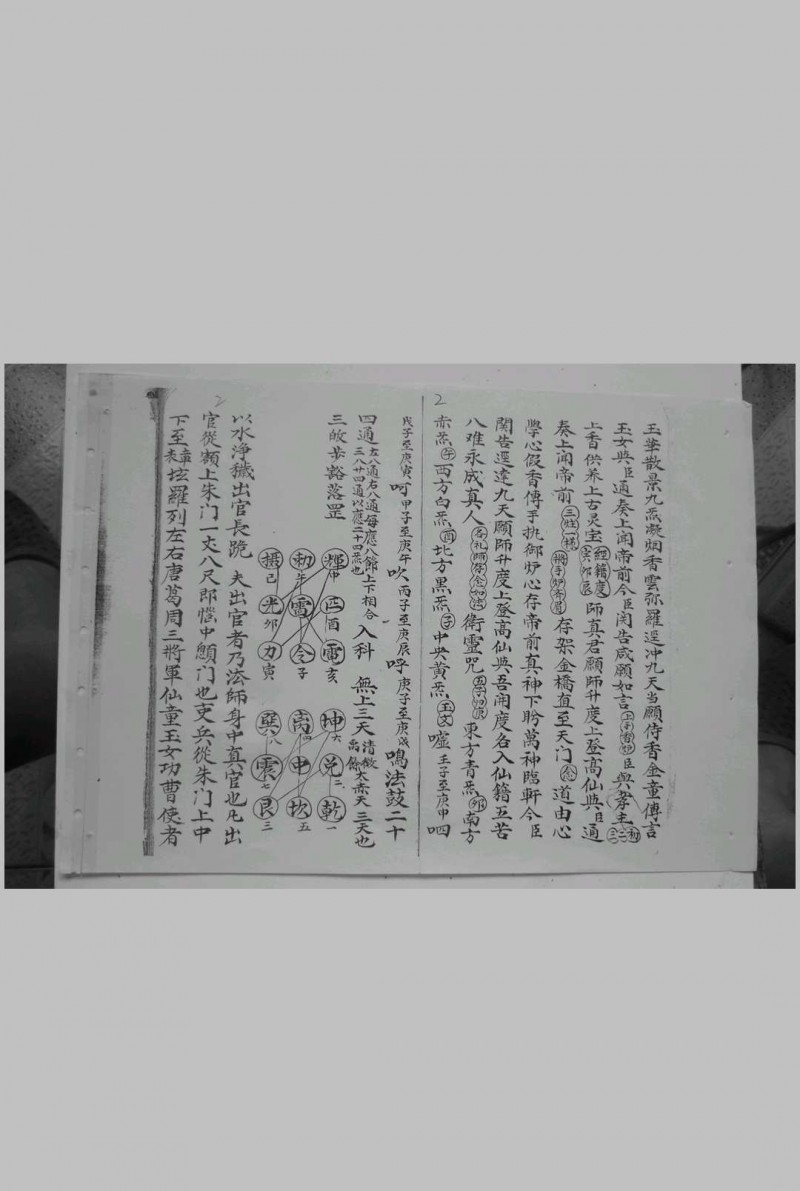 玉華散景九炁凝烟香雲弥羅逕冲九天当願侍香金童傳言
玉女與臣通奏上聞帝前今臣関告咸願如言上手香妙臣與孝主
上香供养上古灵宝經籍度師真君願師升度上登高仙與臣通
奏上聞帝前三炷一楊存架金橋直至天门念道由心
學心假香傳手执御炉心存帝前真神下盼萬神臨軒今臣
関告逕達九天願師升度上登高仙與吾開度名入仙籍五苦
八难永成真人各礼師存念如法衛靈咒東方青炁卯南方
赤炁午西方白炁酉北方黑炁子中央黄炁噓壬子至庚申呬
2
戊子至庚寅呵甲子至庚午吹丙子至庚辰呼庚子至庚戌鳴法鼓二十
四通左八通右八通每應八節上下相合三八廿四通以應二十四炁也入科 無上三天清微禹餘太赤天三天也
三皈步豁落罡
輝申 匹酉 電亥
勅午 雷 令子
摄巳 光卯 力寅
坤六 兑二 乾一
离四 中 坎五
巽八 震七 艮三
以水淨穢出官長跪 夫出官者乃法師身中真官也凡出
官從額上朱门一丈八尺郎幨中顖门也吏兵從朱门上中
下至罗列左右唐葛周三將軍仙童玉女功曹使者
2